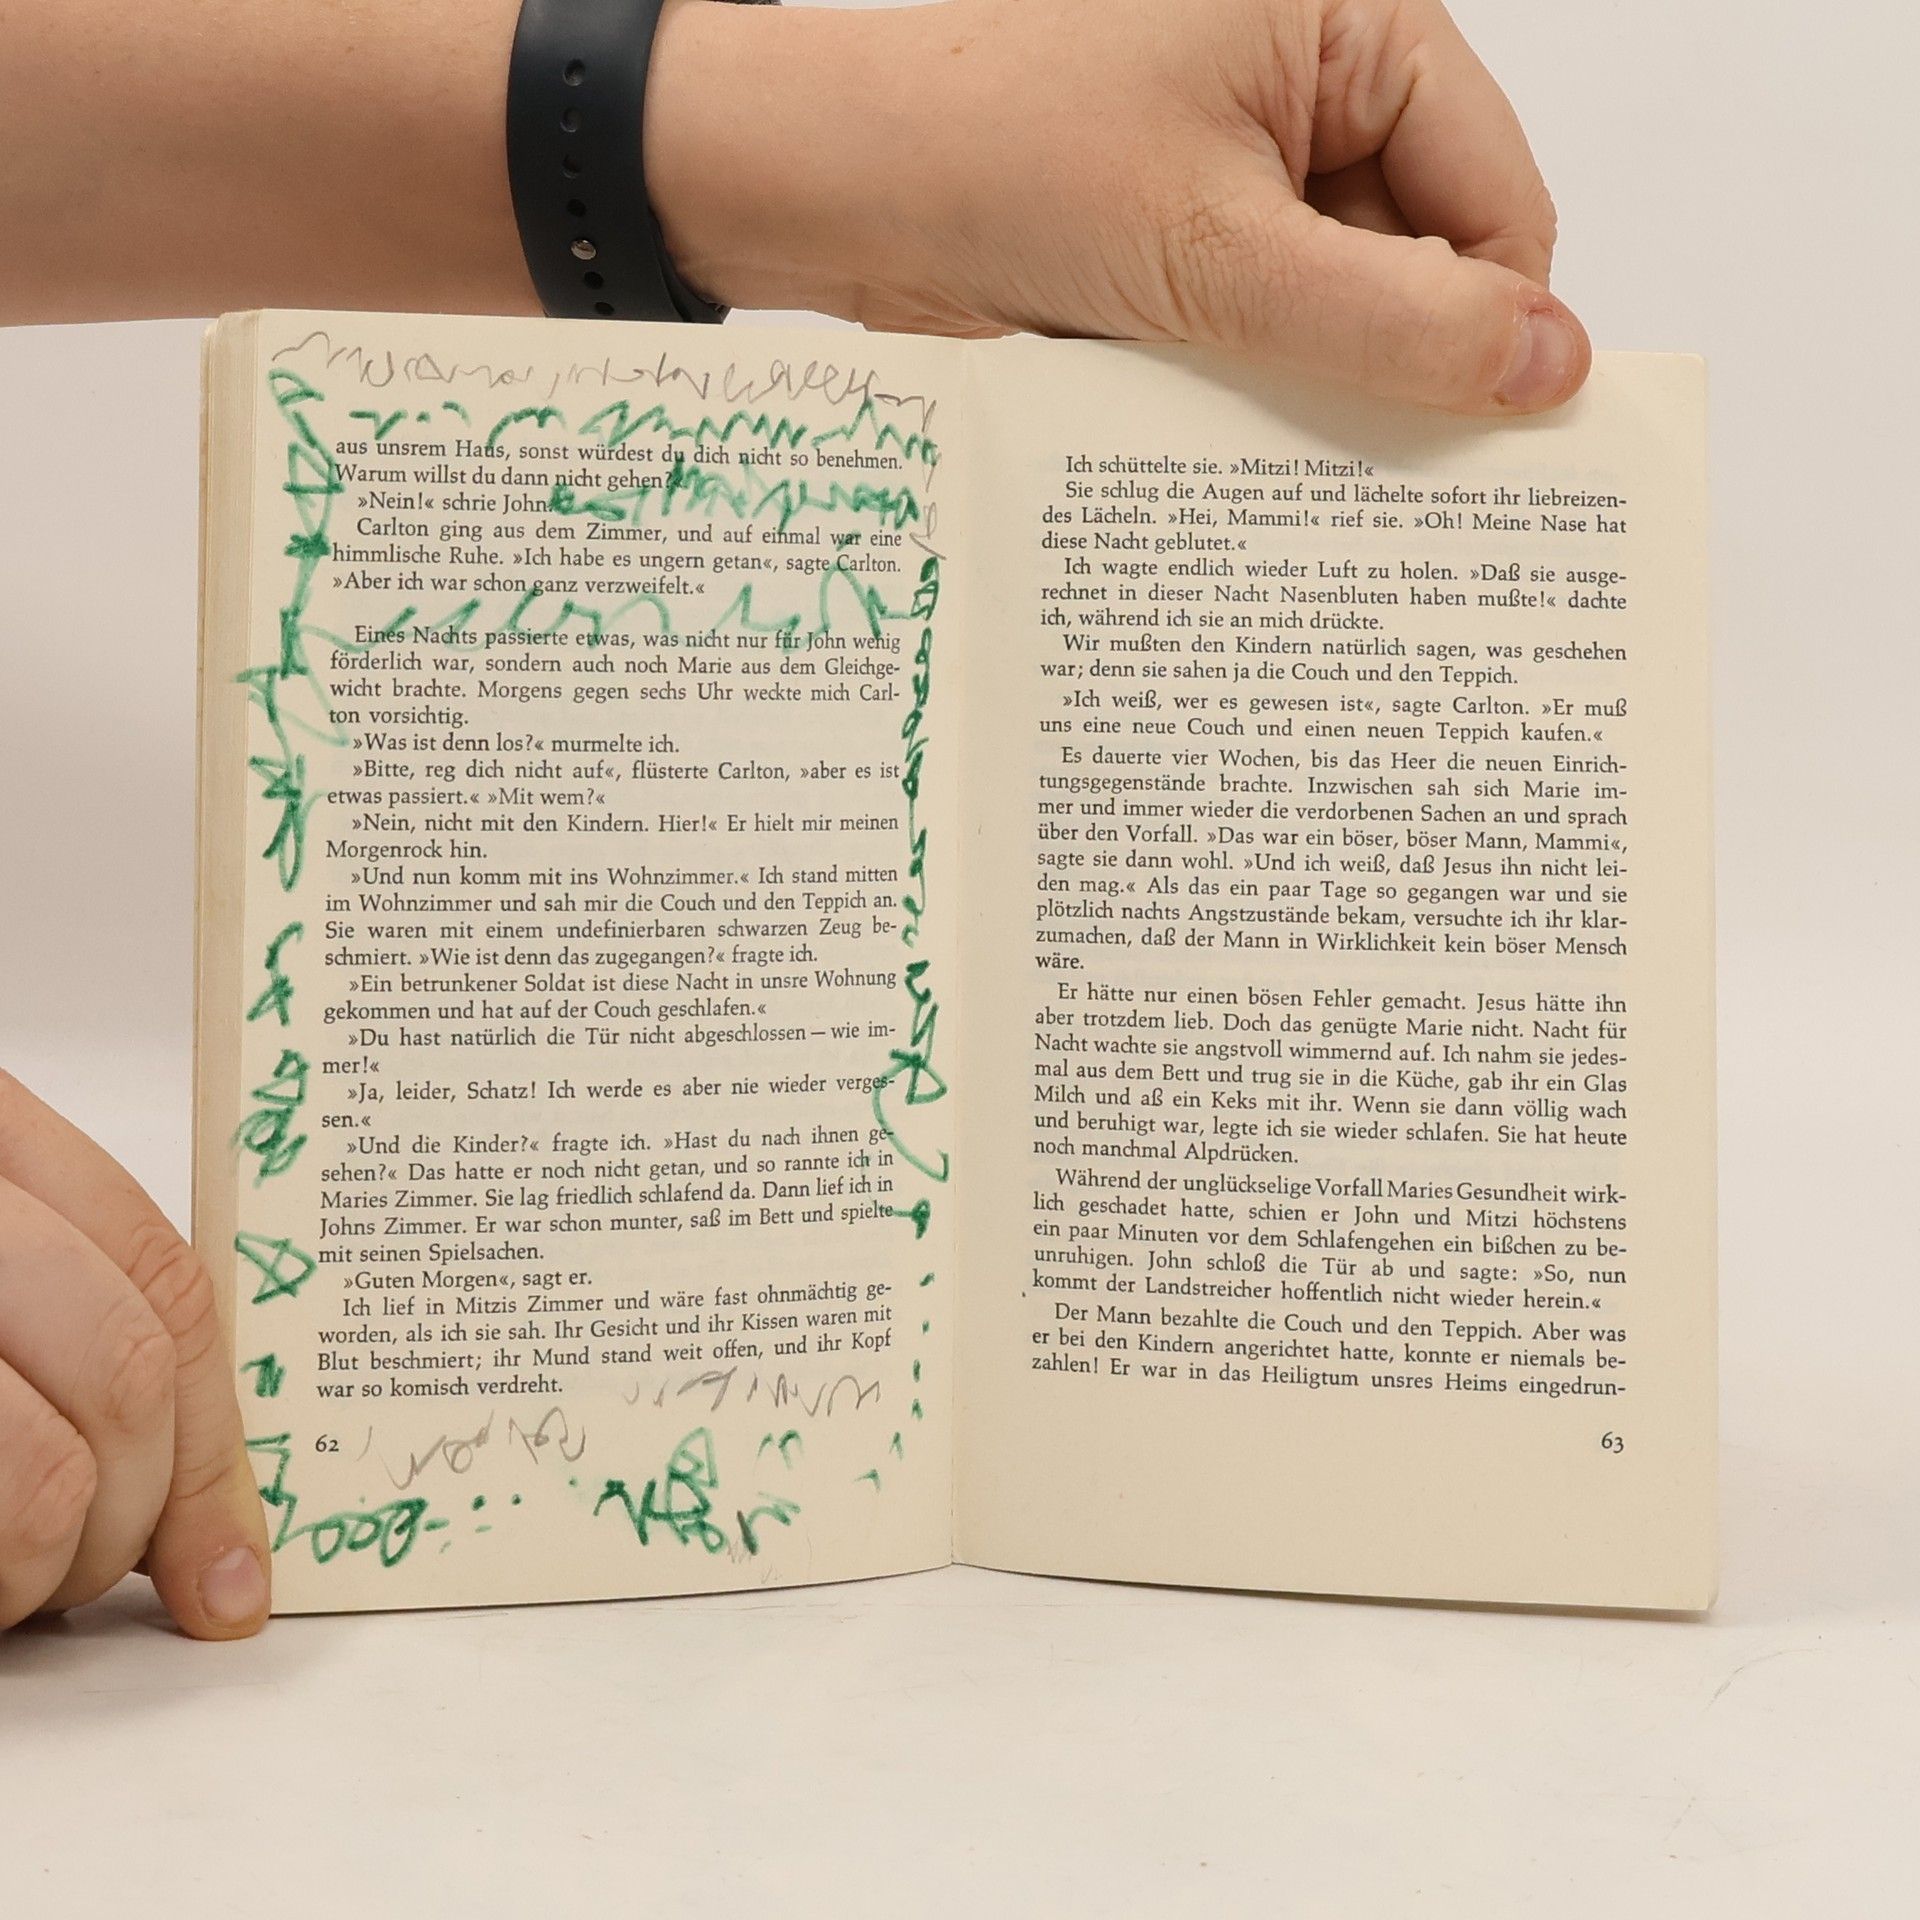 aus unsrem Haus, sonst würdest du dich nicht so benehmen.
Warum willst du dann nicht gehen?«
»Nein!« schrie John.
Carlton ging aus dem Zimmer, und auf einmal war eine
himmlische Ruhe. »Ich habe es ungern getan«, sagte Carlton.
»Aber ich war schon ganz verzweifelt.«
Eines Nachts passierte etwas, was nicht nur für John wenig
förderlich war, sondern auch noch Marie aus dem Gleichge-
wicht brachte. Morgens gegen sechs Uhr weckte mich Carl-
ton vorsichtig.
»Was ist denn los?« murmelte ich.
»Bitte, reg dich nicht auf«, flüsterte Carlton, »aber es ist
etwas passiert.« »Mit wem?«
»Nein, nicht mit den Kindern. Hier!« Er hielt mir meinen
Morgenrock hin.
»Und nun komm mit ins Wohnzimmer.« Ich stand mitten
im Wohnzimmer und sah mir die Couch und den Teppich an.
Sie waren mit einem undefinierbaren schwarzen Zeug be-
schmiert. »Wie ist denn das zugegangen?« fragte ich.
»Ein betrunkener Soldat ist diese Nacht in unsre Wohnung
gekommen und hat auf der Couch geschlafen.«
»Du hast natürlich die Tür nicht abgeschlossen – wie im-
mer!«
»Ja, leider, Schatz! Ich werde es aber nie wieder verges-
sen.«
»Und die Kinder?« fragte ich. »Hast du nach ihnen ge-
sehen?« Das hatte er noch nicht getan, und so rannte ich in
Maries Zimmer. Sie lag friedlich schlafend da. Dann lief ich in
Johns Zimmer. Er war schon munter, saß im Bett und spielte
mit seinen Spielsachen.
»Guten Morgen«, sagt er.
Ich lief in Mitzis Zimmer und wäre fast ohnmächtig ge-
worden, als ich sie sah. Ihr Gesicht und ihr Kissen waren mit
Blut beschmiert; ihr Mund stand weit offen, und ihr Kopf
war so komisch verdreht.
62
Ich schüttelte sie. »Mitzi! Mitzi!«
Sie schlug die Augen auf und lächelte sofort ihr liebreizen-
des Lächeln. »Hei, Mammi!« rief sie. »Oh! Meine Nase hat
diese Nacht geblutet.«
Ich wagte endlich wieder Luft zu holen. »Daß sie ausge-
rechnet in dieser Nacht Nasenbluten haben mußte!« dachte
ich, während ich sie an mich drückte.
Wir mußten den Kindern natürlich sagen, was geschehen
war; denn sie sahen ja die Couch und den Teppich.
»Ich weiß, wer es gewesen ist«, sagte Carlton. »Er muß
uns eine neue Couch und einen neuen Teppich kaufen.«
Es dauerte vier Wochen, bis das Heer die neuen Einrich-
tungsgegenstände brachte. Inzwischen sah sich Marie im-
mer und immer wieder die verdorbenen Sachen an und sprach
über den Vorfall. »Das war ein böser, böser Mann, Mammi«,
sagte sie dann wohl. »Und ich weiß, daß Jesus ihn nicht lei-
den mag.« Als das ein paar Tage so gegangen war und sie
plötzlich nachts Angstzustände bekam, versuchte ich ihr klar-
zumachen, daß der Mann in Wirklichkeit kein böser Mensch
wäre.
Er hätte nur einen bösen Fehler gemacht. Jesus hätte ihn
aber trotzdem lieb. Doch das genügte Marie nicht. Nacht für
Nacht wachte sie angstvoll wimmernd auf. Ich nahm sie jedes-
mal aus dem Bett und trug sie in die Küche, gab ihr ein Glas
Milch und aß ein Keks mit ihr. Wenn sie dann völlig wach
und beruhigt war, legte ich sie wieder schlafen. Sie hat heute
noch manchmal Alpdrücken.
Während der unglückselige Vorfall Maries Gesundheit wirk-
lich geschadet hatte, schien er John und Mitzi höchstens
ein paar Minuten vor dem Schlafengehen ein bißchen zu be-
unruhigen. John schloß die Tür ab und sagte: »So, nun
kommt der Landstreicher hoffentlich nicht wieder herein.«
Der Mann bezahlte die Couch und den Teppich. Aber was
er bei den Kindern angerichtet hatte, konnte er niemals be-
zahlen! Er war in das Heiligtum unsres Heims eingedrun-
63